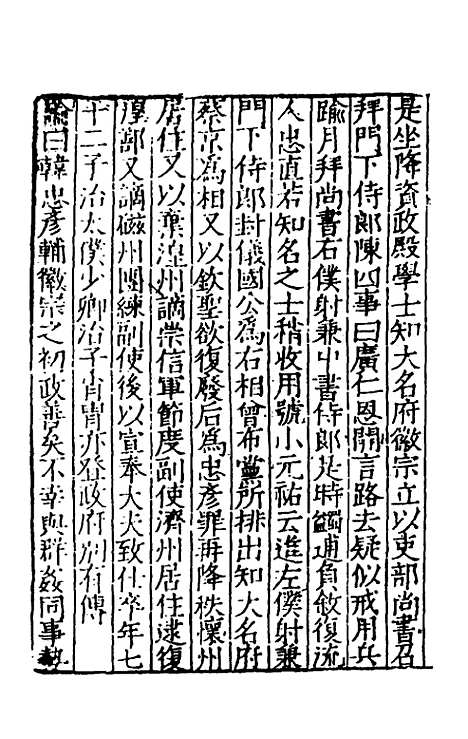 是坐降資政殿學士知大名府徽宗立以吏部尚書召
拜門下侍郎陳四事曰廣仁恩開言路去疑似戒用兵
踰月拜尚書右僕射兼中書侍郎是時蠲逋負敘復流
人忠直若知名之士稍收用號小元祐云進左僕射兼
門下侍郎封儀國公爲右相曾布黨所排出知大名府
蔡京爲相又以欽聖欲復廢后爲忠彥罪再降秩懷州
居住又以棄湟州謫崇信軍節度副使濟州居住逮復
湟鄯又謫磁州團練副使後以宣奉大夫致仕卒年七
十二子治太僕少卿治子肖胄亦登政府別有傳
論曰韓忠彥輔徽宗之初政善矣不幸與群姦同事勢